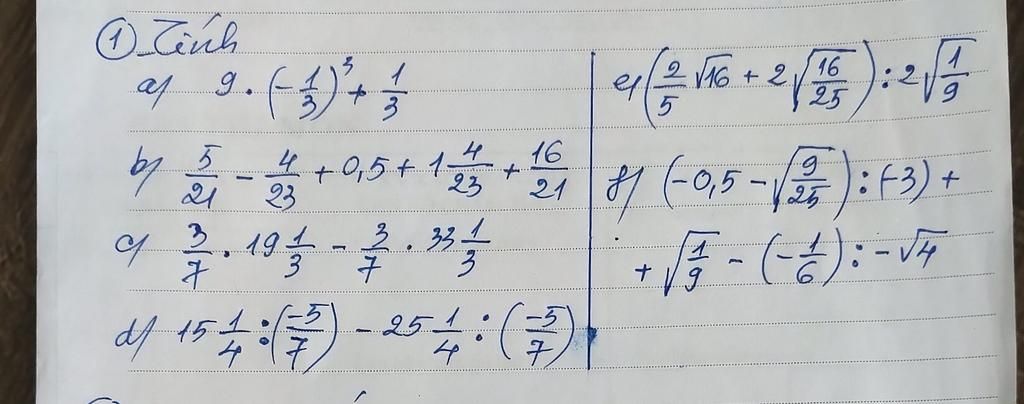 ① Tính
a) 9 · (-1/3)³ + 1/3
b) 5/21 - 4/23 + 0,5 + 1 4/23 + 16/21
c) 3/7 · 19 1/3 - 3/7 · 33 1/3
d) 15 1/4 : (-5/7) - 25 1/4 : (-5/7)
e) (2/5 √16 + 2 √(16/25)) : 2 √(1/9)
f) (-0,5 - √(9/25)) : (-3) +
+ √(1/9) - (-1/6) : -√4